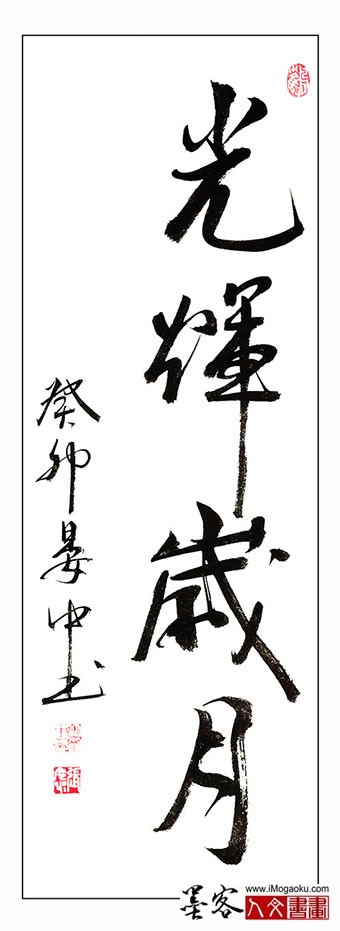 光輝歲月
癸卯晏中书
墨客
www.iMogaoku.com
人文書畫